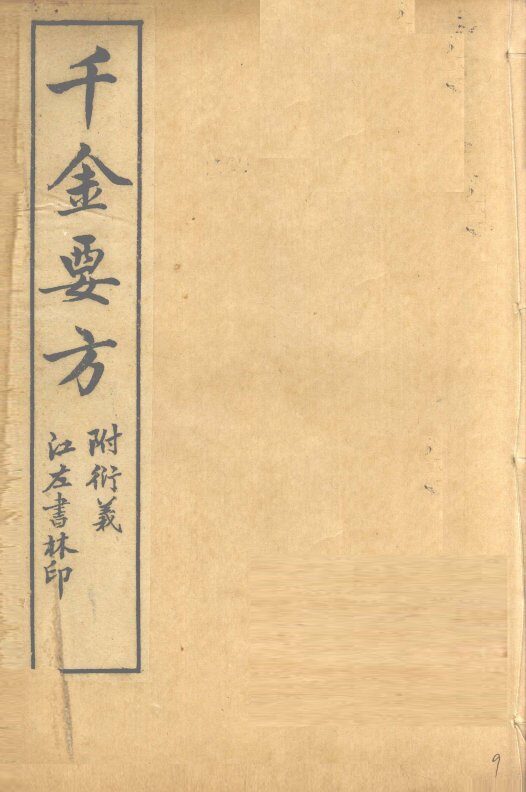 千金要方
附衍義
江左書林印
9